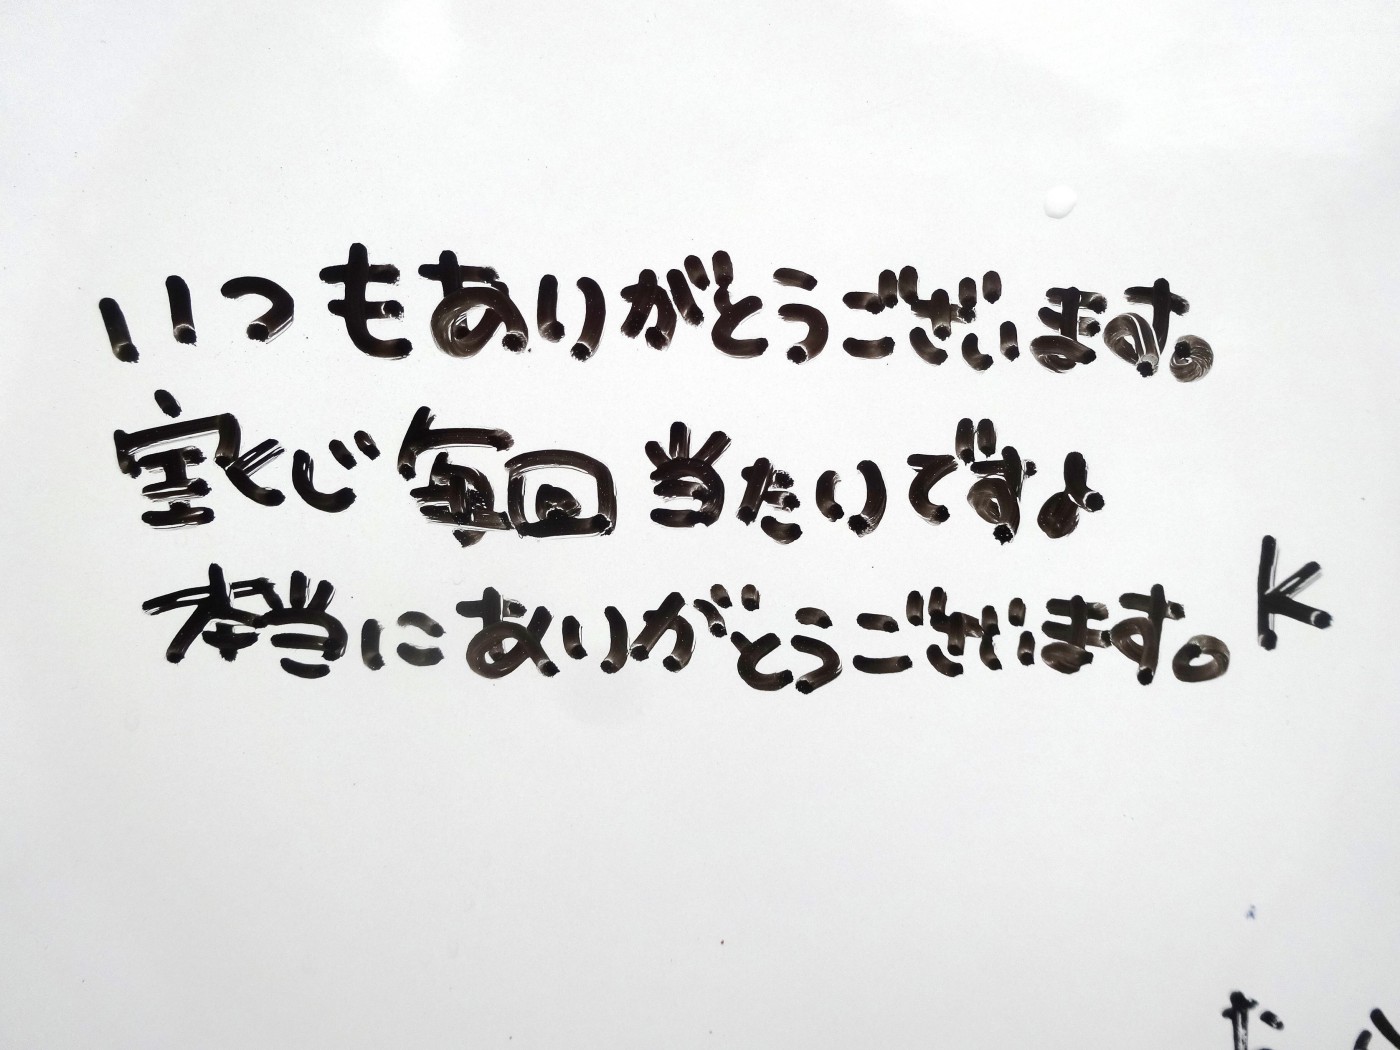 いつもありがとうございます。
宝くじ毎回当たいですよ
本当にありがとうございます。K